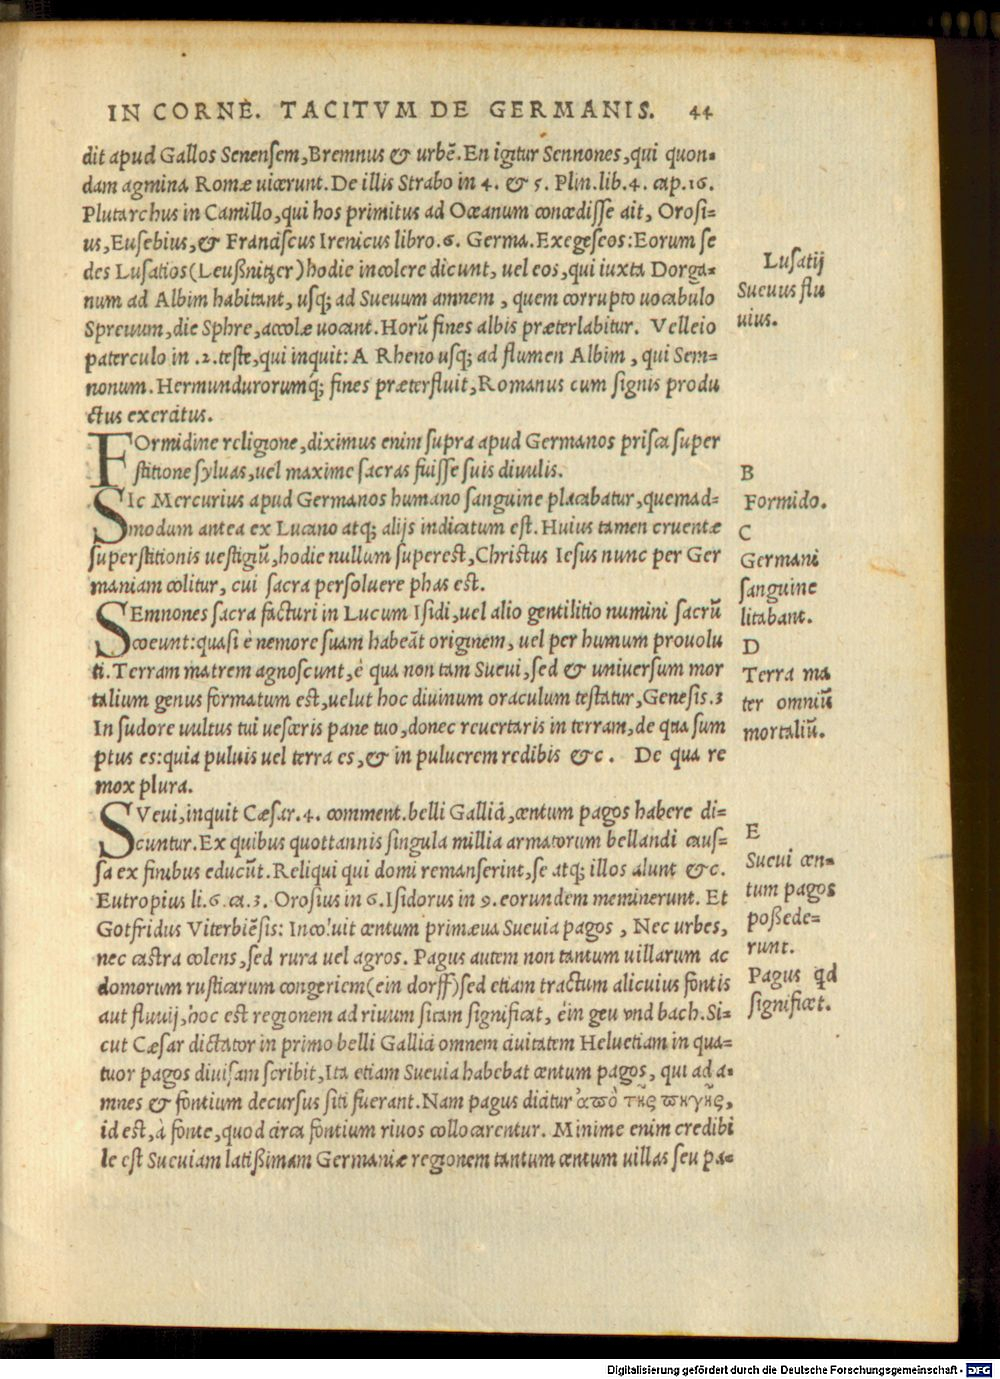 IN CORNE. TACITVM DE GERMANIS. 44
dit apud Gallos Senensem, Bremnus & urbē. En igitur Sennones, qui quon-
dam agmina Romæ uicerunt. De illis Strabo in 4. & 5. Plin. lib. 4. cap. 16.
Plutarchus in Camillo, qui hos primitus ad Oceanum concedisse ait, Orosi-
us, Eusebius, & Franciscus Irenicus libro. 6. Germa. Exegeseos: Eorum se
des Lusatios (Leußnitzer) hodie incolere dicunt, uel eos, qui iuxta Dorga-
num ad Albim habitant, usq; ad Sueuum amnem, quem corrupto uocabulo
Spreuum, die Sphre, accolæ uocant. Horū fines albis præterlabitur. Velleio
paterculo in .2. teste, qui inquit: A Rheno usq; ad flumen Albim, qui Sem-
nonum. Hermundurorumq́; fines præterfluit, Romanus cum signis produ
ctus exercitus.
FOrmidine religione, diximus enim supra apud Germanos prisca super
stitione syluas, uel maxime sacras fuisse suis diuulis.
SIc Mercurius apud Germanos humano sanguine placabatur, quemad-
modum antea ex Lucano atq; alijs indicatum est. Huius tamen cruentæ
superstitionis uestigiū, hodie nullum superest, Christus Iesus nunc per Ger
maniam colitur, cui sacra persoluere phas est.
SEmnones sacra facturi in Lucum Isidi, uel alio gentilitio numini sacrū
coeunt: quasi è nemore suam habeāt originem, uel per humum prouolu
ti. Terram matrem agnoscunt, è qua non tam Sueui, sed & uniuersum mor
talium genus formatum est, uelut hoc diuinum oraculum testatur, Genesis. 3
In sudore uultus tui uesceris pane tuo, donec reuertaris in terram, de qua sum
ptus es: quia puluis uel terra es, & in puluerem redibis &c. De qua re
mox plura.
SVeui, inquit Cæsar. 4. comment. belli Gallici, centum pagos habere di-
cuntur. Ex quibus quottannis singula millia armatorum bellandi caus-
sa ex finibus educūt. Reliqui qui domi remanserint, se atq; illos alunt &c.
Eutropius li. 6. ca. 3. Orosius in 6. Isidorus in 9. eorundem meminerunt. Et
Gotfridus Viterbiēsis: Incoluit centum primæua Sueuia pagos, Nec urbes,
nec castra colens, sed rura uel agros. Pagus autem non tantum uillarum ac
domorum rusticarum congeriem (ein dorff) sed etiam tractum alicuius fontis
aut fluuij, hoc est regionem ad riuum sitam significat, ein geu vnd bach. Si-
cut Cæsar dictator in primo belli Gallici omnem ciuitatem Heluetiam in qua-
tuor pagos diuisam scribit, Ita etiam Sueuia habebat centum pagos, qui ad a-
mnes & fontium decursus siti fuerant. Nam pagus dicitur ἀπὸ τῆς πηγῆς,
id est, à fonte, quod circa fontium riuos collocarentur. Minime enim credibi
le est Sueuiam latißimam Germaniæ regionem tantum centum uillas seu pa-
Lusatij
Sueuus flu
uius.
B
Formido.
C
Germani
sanguine
litabant.
D
Terra ma
ter omniū
mortaliū.
E
Sueui cen-
tum pagos
poßede-
runt.
Pagus qd
significet.
Digitalisierung gefördert durch die Deutsche Forschungsgemeinschaft - DFG